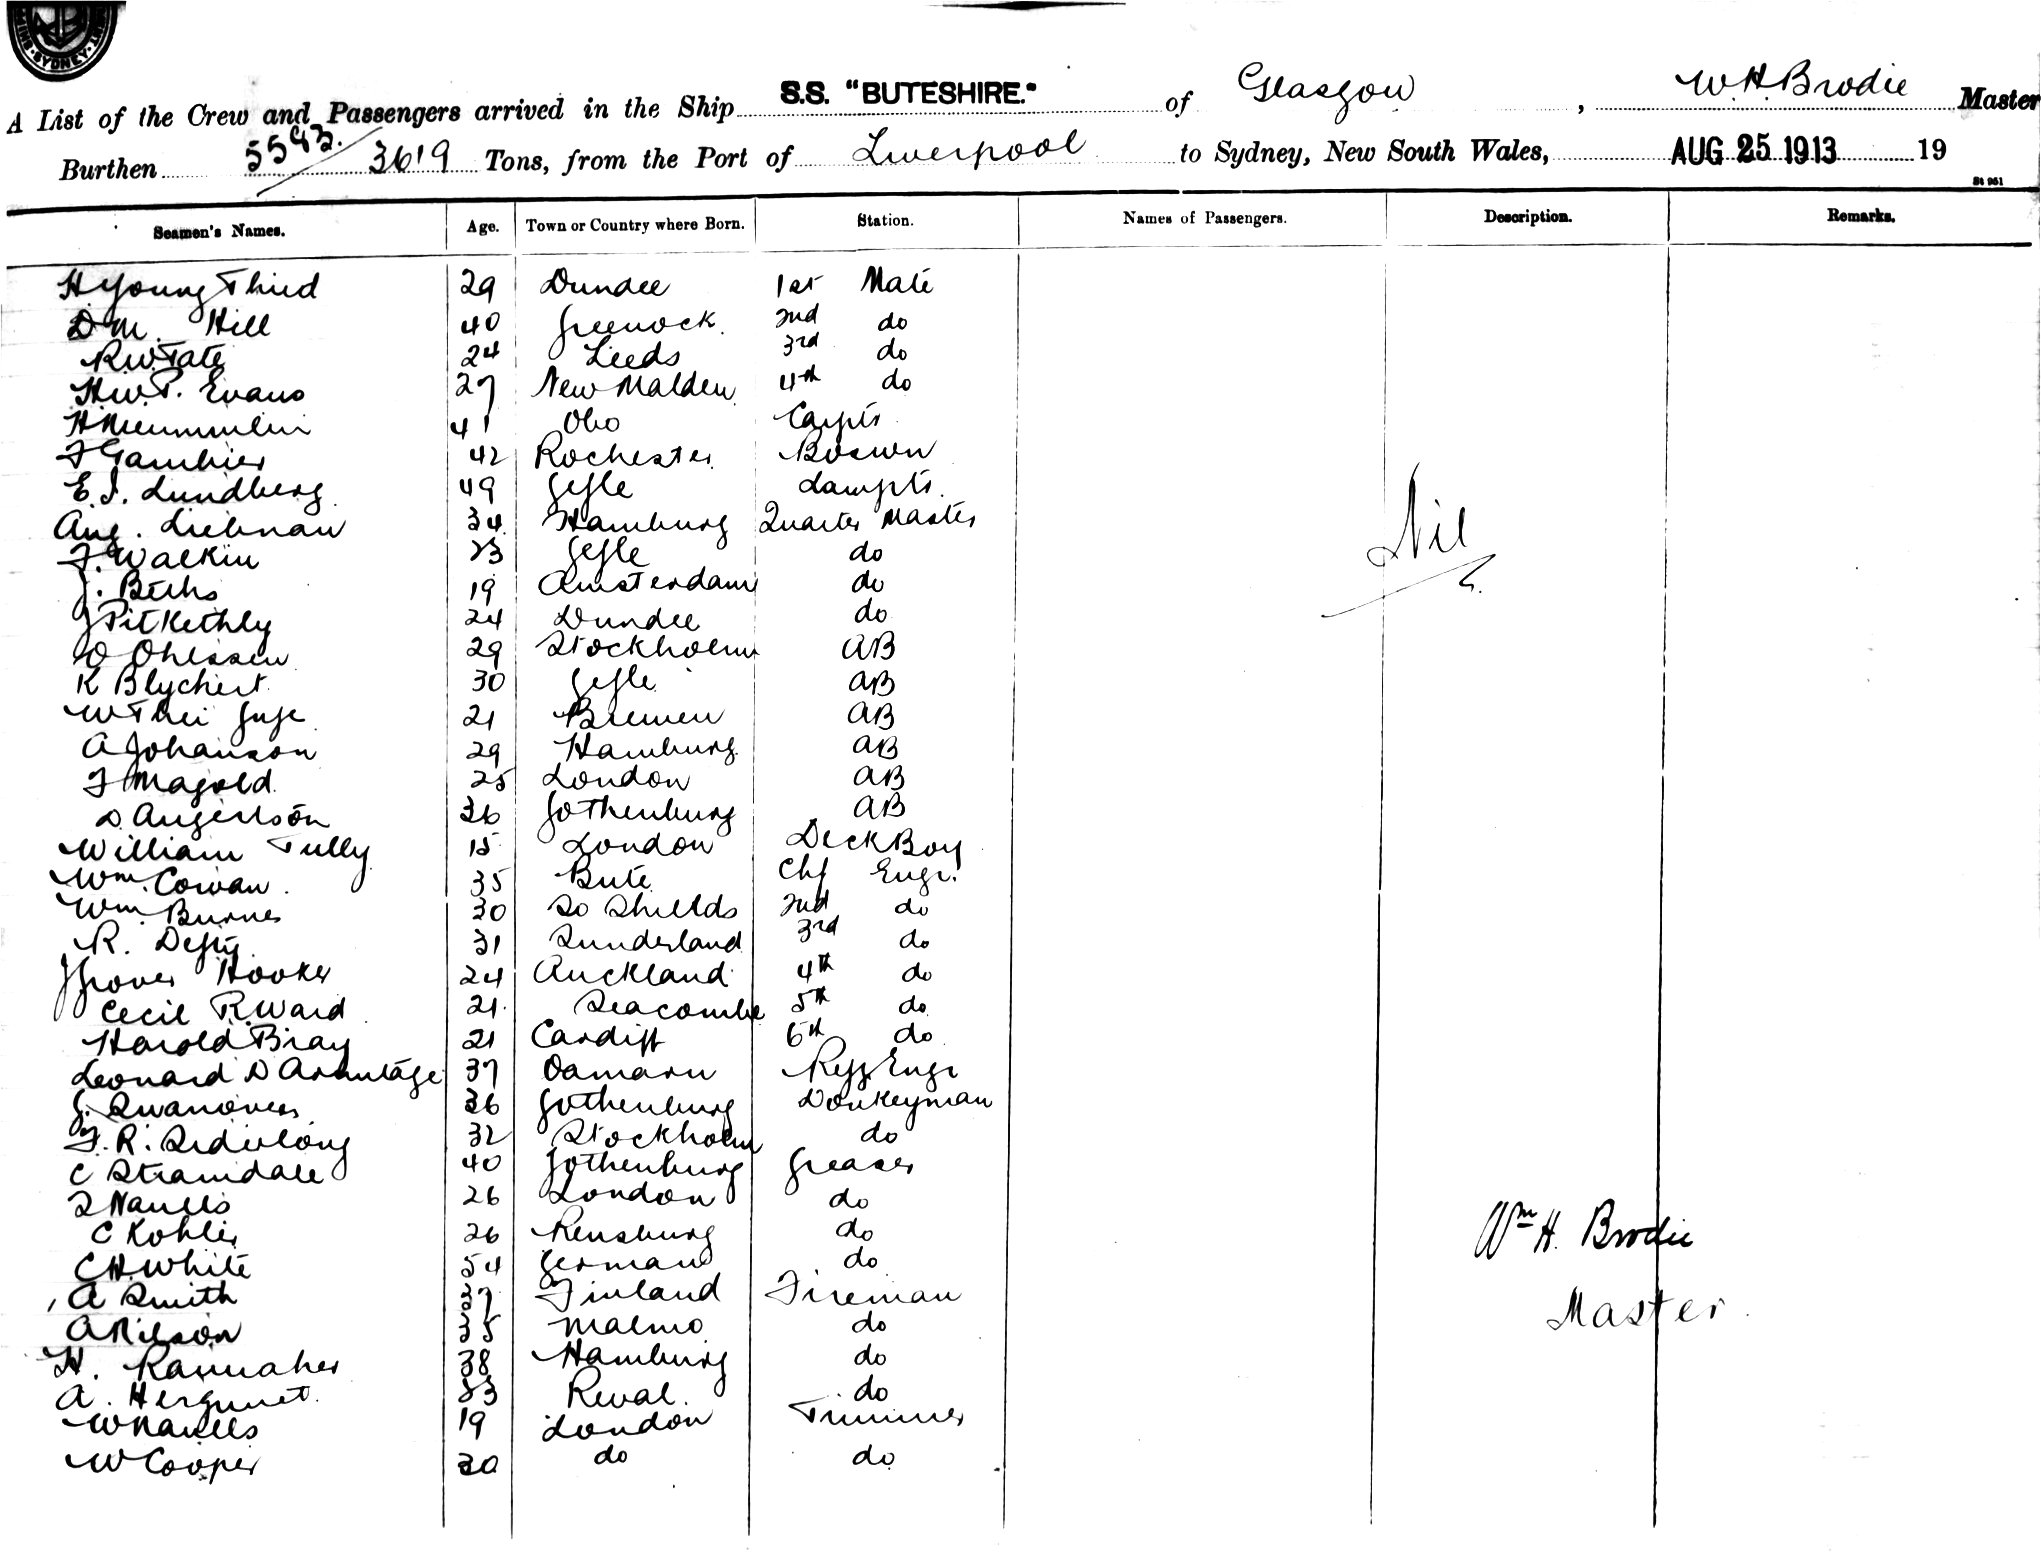 SYDNEY
A List of the Crew and Passengers arrived in the Ship S.S. "BUTESHIRE." of Glasgow, W.H. Brodie Master
Burthen 5593. / 3619 Tons, from the Port of Liverpool to Sydney, New South Wales, AUG 25 1913 19
St 961
Seamen's Names. Age. Town or Country where Born. Station. Names of Passengers. Description. Remarks.
H Young Third 29 Dundee 1st Mate
D M. Hill 40 Greenock. 2nd do
R.W. Tate 24 Leeds 3rd do
H.W.P. Evans 27 New Malden 4th do
H 41 Obo Carptr
F Gambier 42 Rochester Boswn
E. I. Lundberg 49 Gefle Lamptr.
Aug. Liebnau 34 Hamburg Quarter Master
F. Walkin 23 Gefle do
J. Beths 19 Amsterdam do
J Pitkethly 24 Dundee do
O Ohlssen 29 Stockholm AB
K Blychert 30 Gefle AB
W 21 Bremen AB
A Johanson 29 Hamburg AB
F Magold 25 London AB
D. 36 Gothenburg AB
William Tully 15 London Deck Boy
Wm. Cowan. 35 Bute Chf Engr.
Wm. Burnes 30 So Shields 2nd do
R. Defty 31 Sunderland 3rd do
J Grover Hooker 24 Auckland 4th do
Cecil R. Ward 21 Seacombe 5th do
Harold Bray 21 Cardiff 6th do
Leonard D Armitage 37 Oamaru Refg Engr
J. 36 Gothenburg Donkeyman
F. R. 32 Stockholm do
C Stramdale 40 Gothenburg Greaser
26 London do
C Kohler 26 Rensburg do
C H. White 54 German do
A Smith 27 Finland Fireman
A Nilson 25 Malmo do
H. 38 Hamburg do
A. 23 Reval. do
W 19 London Trimmer
W Cooper 30 do do
Nil
Wm H. Brodie
Master